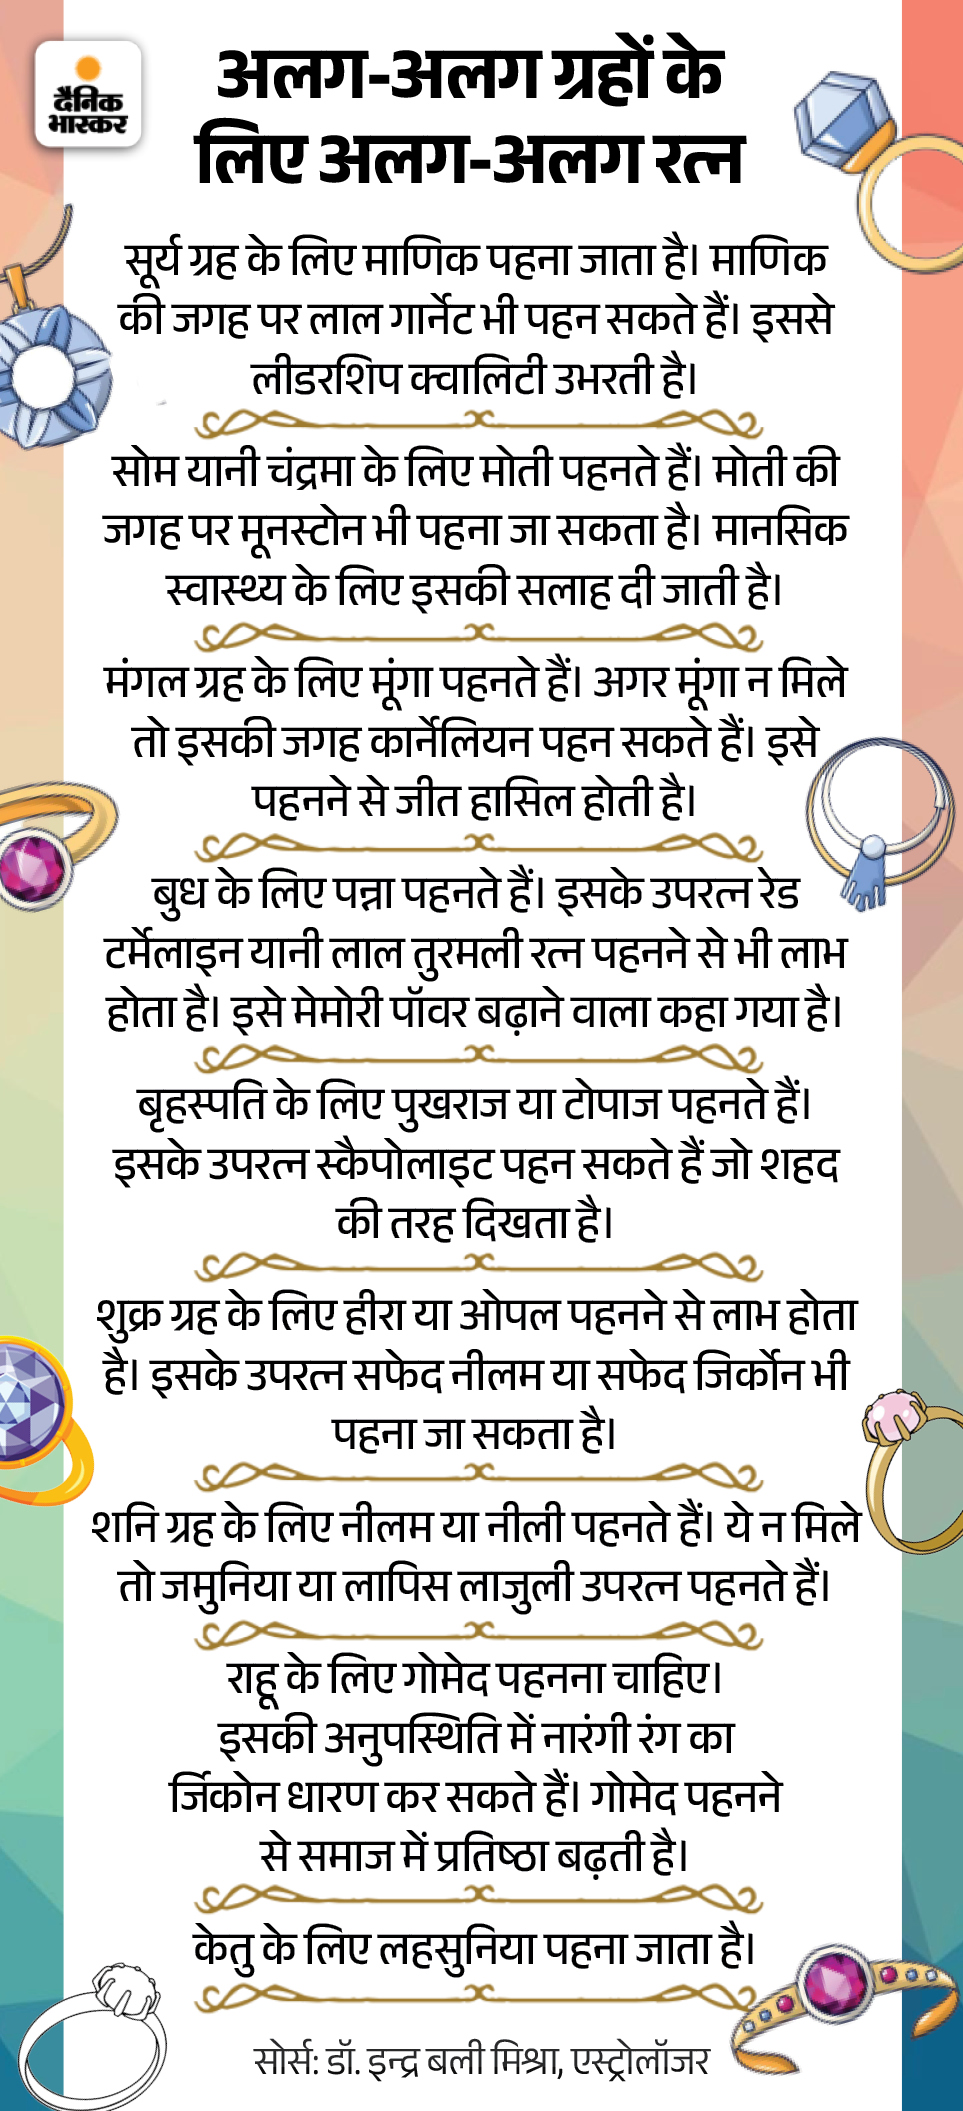 दैनिक
भास्कर
अलग-अलग ग्रहों के
लिए अलग-अलग रत्न
सूर्य ग्रह के लिए माणिक पहना जाता है। माणिक
की जगह पर लाल गार्नेट भी पहन सकते हैं। इससे
लीडरशिप क्वालिटी उभरती है।
सोम यानी चंद्रमा के लिए मोती पहनते हैं। मोती की
जगह पर मूनस्टोन भी पहना जा सकता है। मानसिक
स्वास्थ्य के लिए इसकी सलाह दी जाती है।
मंगल ग्रह के लिए मूंगा पहनते हैं। अगर मूंगा न मिले
तो इसकी जगह कार्नेलियन पहन सकते हैं। इसे
पहनने से जीत हासिल होती है।
बुध के लिए पन्ना पहनते हैं। इसके उपरत्न रेड
टर्मेलाइन यानी लाल तुरमली रत्न पहनने से भी लाभ
होता है। इसे मेमोरी पॉवर बढ़ाने वाला कहा गया है।
बृहस्पति के लिए पुखराज या टोपाज पहनते हैं।
इसके उपरत्न स्कैपोलाइट पहन सकते हैं जो शहद
की तरह दिखता है।
शुक्र ग्रह के लिए हीरा या ओपल पहनने से लाभ होता
है। इसके उपरत्न सफेद नीलम या सफेद जिर्कोन भी
पहना जा सकता है।
शनि ग्रह के लिए नीलम या नीली पहनते हैं। ये न मिले
तो जमुनिया या लापिस लाजुली उपरत्न पहनते हैं।
राहू के लिए गोमेद पहनना चाहिए।
इसकी अनुपस्थिति में नारंगी रंग का
र्जिकोन धारण कर सकते हैं। गोमेद पहनने
से समाज में प्रतिष्ठा बढ़ती है।
केतु के लिए लहसुनिया पहना जाता है।
सोर्स: डॉ. इन्द्र बली मिश्रा, एस्ट्रोलॉजर